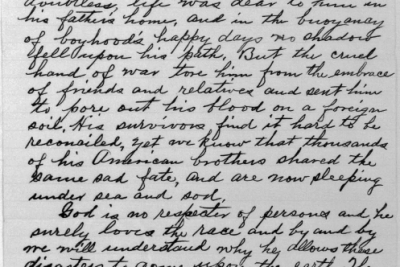 doubtless, life was dear to him in
his father's home, and in the buoyancy
of boyhood's happy days no shadow
fell upon his path. But the cruel
hand of war tore him from the embrace
of friends and relatives and sent him
to pore out his blood on a foreign
soil. His survivors find it hard to be
reconciled, yet we know that thousands
of his American brothers shared the
same sad fate, and are now sleeping
under sea and sod.
God is no respecter of persons and he
surely loves the race and by and by
we will understand why he allows these
disasters to come upon the earth. The